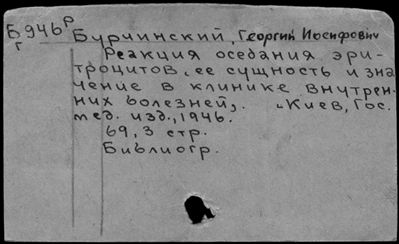 Б946р Бурчинский, Георгий Иосифович
г
Реакция оседания эри-
троцитов, ее сущность и зна-
чение в клинике внутрен-
них болезней. Киев, Гос.
мед. изд., 1946.
69, 3 стр.
Библиогр.